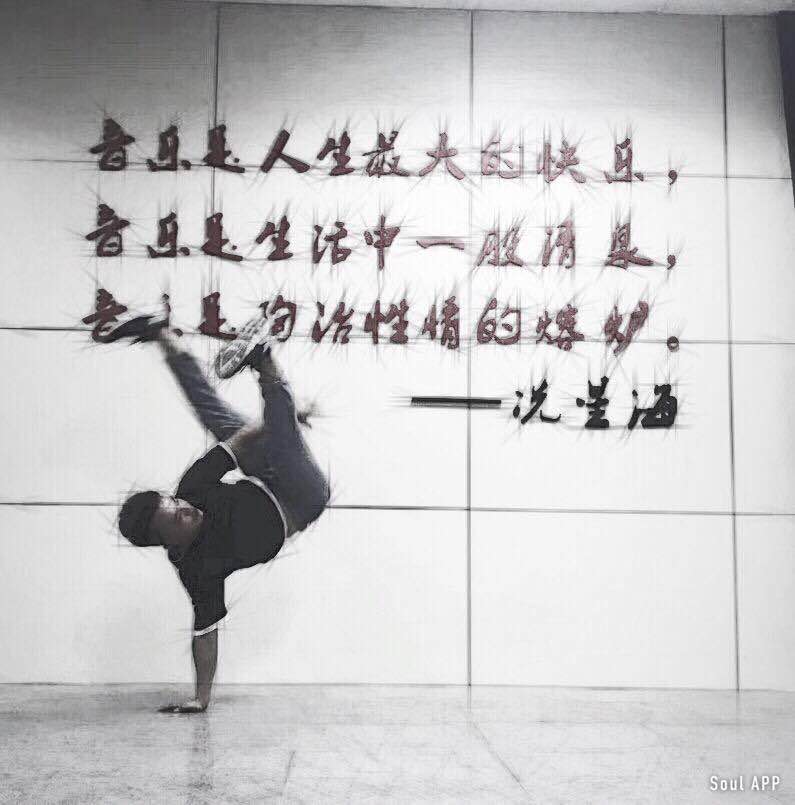 音乐是人生最大的快乐，
音乐是生活中一股清泉，
音乐是陶冶性情的熔炉。
——冼星海
Soul APP